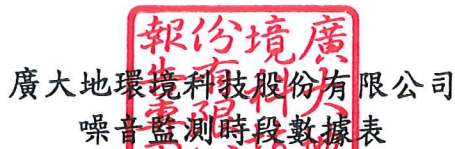 廣大地環境科技股份有限公司
噪音監測時段數據表